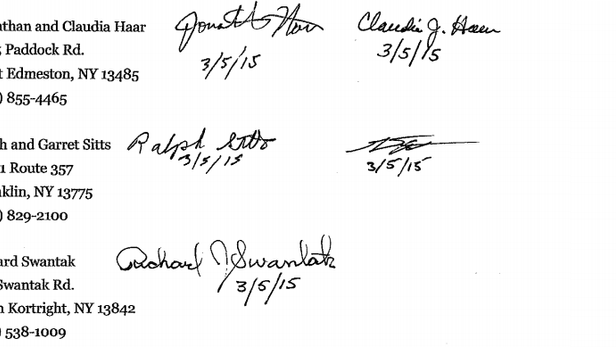 than and Claudia Haar Jonath Haar Claudia J. Haar
Paddock Rd. 3/5/15 3/5/15
t Edmeston, NY 13485
) 855-4465
h and Garret Sitts Ralph Sitts
1 Route 357 3/5/15 3/5/15
klin, NY 13775
) 829-2100
ard Swantak Richard J. Swantak
Swantak Rd. 3/5/15
n Kortright, NY 13842
) 538-1009